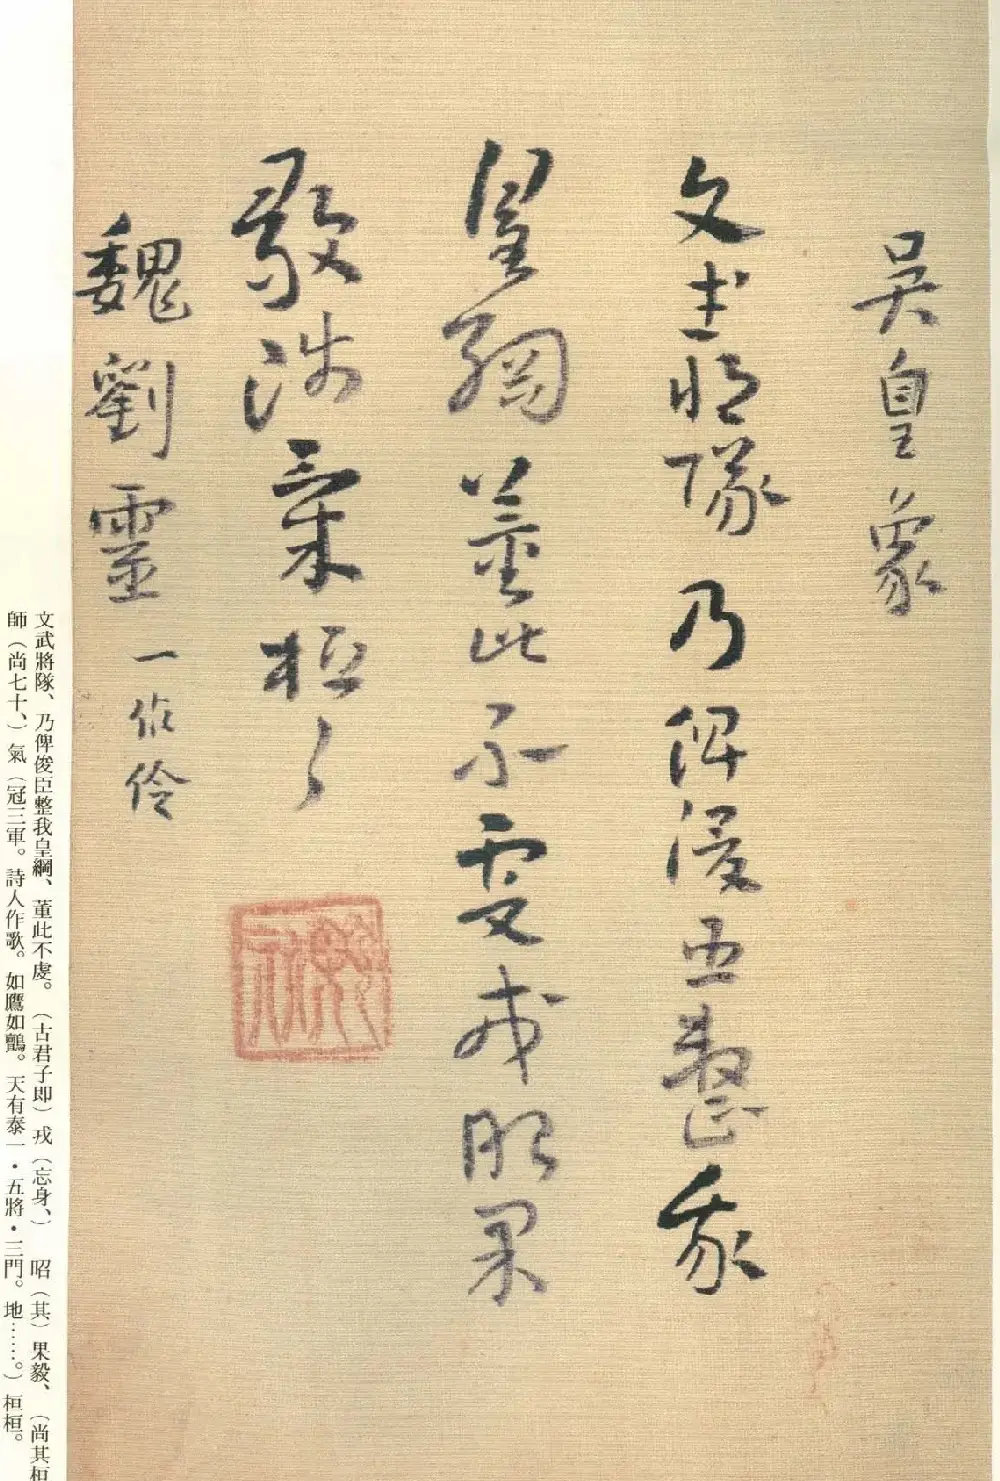 吳皇象
文武將隊乃俾俊臣整我
皇綱董此不虔戎昭果
毅師氣桓〻
魏劉靈一作伶
文武將隊、乃俾俊臣整我皇綱、董此不虔。（古君子即）戎（忘身、）昭（其）果毅、（尚其桓
師（尚七十、）氣（冠三軍。詩人作歌。如鷹如鸇。天有泰一・五將・三門。地……。）桓桓。